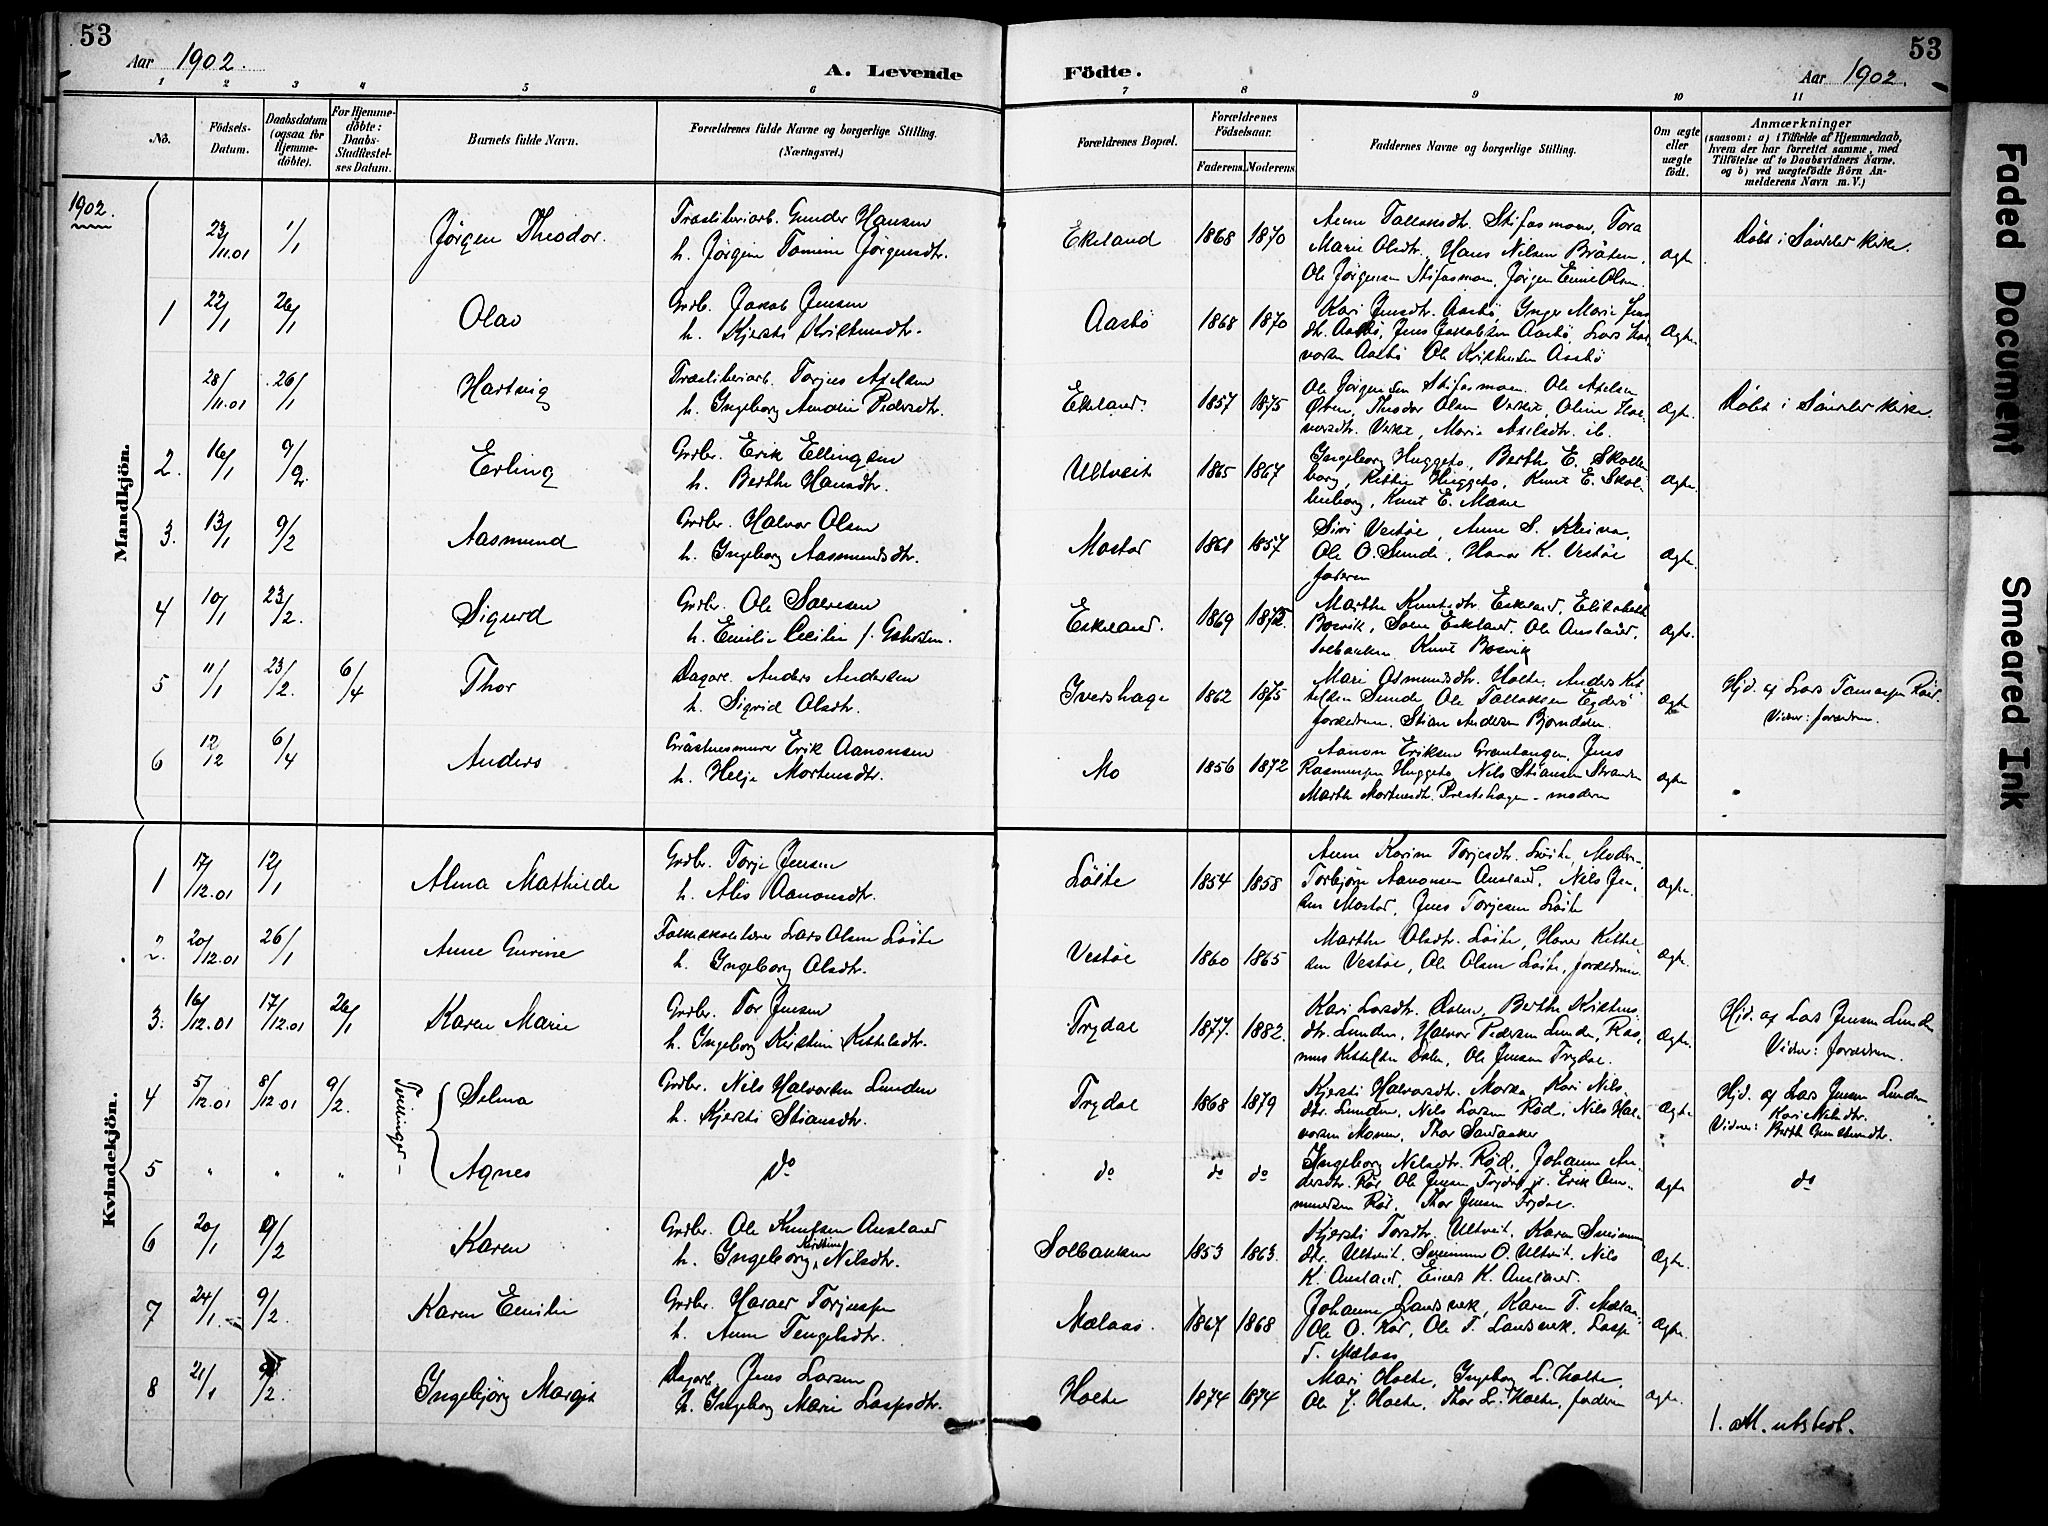 53
Aar 1902.
A. Levende
Födte.
Aar 1902.
53
1 2 3 4 5 6 7 8 9 10 11
No.
Födsels-
Datum.
Daabsdatum
(ogsaa for
Hjemme-
döbte).
For Hjemme-
döbte:
Daabs-
Stadfæstel-
ses Datum.
Barnets fulde Navn.
Forældrenes fulde Navne og borgerlige Stilling.
(Næringsvei.)
Forældrenes Bopæl.
Forældrenes
Födselsaar.
Faderens. Moderens.
Faddernes Navne og borgerlige Stilling.
Om ægte
eller
uægte
födt.
Anmærkninger
(saasom: a) i Tilfælde af Hjemmedaab,
hvem der har forrettet samme, med
Tilföielse af to Daabsvidners Navne,
og b) ved uægtefödte Börn An-
melderens Navn m. V.)
1902.
Mandkjön.
23/11.01 1/1 Jørgen Theodor. Træsliberiarb. Gunder Hansen
h. Jørgine Tomine Jørgensdtr.
Ekeland 1868 1870
Marie Olsdtr., Hans Nilsen Bråten,
Ole Jørgensen Stifosmoen, Jørgen Emil Olsen.
ægte Døbt i Søndeled kirke.
1 22/1 26/1 Olav Grdbr. Jakob Jensen
Aasbø 1868 1870 Kari Jensdtr. Aasbø, Inger Marie Jens
dtr. Aasbø, Jens Jakobsen Aasbø, Lars Hal
vorsen Aasbø Ole Kristensen Aasbø
ægte.
28/11.01 26/1 Hartvig Træsliberiarb. Torjus Axelsen
h. Ingeborg Amalie Pedersdtr.
Ekeland. 1857 1875 Ole Jørgensen Stifosmoen. Ole Axelsen
Theodor Olsen Verket, Oline Hal
vorsdtr. Verket, Marie Axelsdtr. ib.
ægte. Døbt i Søndeled kirke.
2. 16/1 9/2 Erling Grdbr. Erik Ellingsen
h. Berthe Hansdtr.
Ultveit 1865 1867 Ingeborg Huggeto, Berthe E. Skollen
borg, Kittil Huggeto, Knut E. Skol
lenborg, Knut E. Mæsel
ægte.
3. 13/1 9/2 Aasmund Grdbr. Halvor Olsen
h. Ingeborg Aasmundsdtr.
Mostad 1861 1857 Siri Vestøl, Anne S. Kleiva,
Ole O. Sunde, Haavor K. Vestøl
faderen
ægte.
4 10/1 23/2. Sigurd Grdbr. Ole Solvesen
h. Emilie Cecilie f.
Eskeland. 1869 1872. Marthe Knutsdtr. Eskeland, Elisabeth
Bosvik, Ole Ausland,
Solbakken Knut Bosvik
ægte.
5 11/1 23/2. 6/4 Thor Dagarb. Anders Andersen
h. Sigrid Olsdtr.
Ivershage 1862 1875 Mari Osmundsdtr. Holte, Anders Kit
telsen Sunde Ole Tallaksen Egderø
forældrene. Stian Andersen
ægte Hjd. af Lars Tamesen Rød.
Vidner: forældrene.
6 12/12 6/4 Anders Gråstensmurer Erik Aanonsen
h. Helje Mortensdtr.
Mo 1856 1872 Aanon Eriksen Grantangen, Jens
Rasmussen Huggeto, Nils Stiansen Stranden
Marthe Mortensdtr. Prestehagen - moderen
ægte
Kvindekjön.
1 17/12.01 12/1 Alma Mathilde Grdbr. Torje Jensen
h. Alis Aanonsdtr.
Løite 1854 1858 Anne Karine Torjesdtr. Løite, Moder-
Torbjørn Aanonsen Ausland, Nils Jen,
sen Mostad, Jens Torjesen Løite
ægte.
2. 20/12.01 26/1 Anne Gurine Folkeskolelærer Lars Olsen Løite
h. Ingeborg Olsdtr.
Vestøl 1860 1865 Marthe Olsdtr. Løite, Haver Kittel
sen Vestøl, Ole Olsen Løite, forældrene.
ægte.
3. 16/12.01 17/12.01 26/1 Karen Marie Grdbr. Tor Jensen
h. Ingeborg Kirstine Kittelsdtr.
Trydal 1877. 1882. Kari Larsdtr. Dalen, Berthe Kristens
dtr. Lunden, Halvor Pedersen Lunden, Ras,
mus Kittelsen Dalen, Ole Jensen Trydal.
ægte. Hjd. af Lars Jensen Lunden
Vidner: forældrene.
4 5/12.01 8/12.01 9/2. Tvillinger - Selma Grdbr. Nils Halvorsen Lunden
h. Kjersti Stiansdtr.
Trydal 1868 1879 Kjersti Halvorsdtr. Kari Nils.
dtr. Lunden, Nils Larsen Rød, Nils Hal
vorsen Moren, Thor Sandaaker
ægte Hjd. af Lars Jensen Lunden
Vidner: Kari Nilsdtr.
5 " " " Agnes do
do do do Ingeborg Nilsdtr. Rød, Johanne An
dersdtr. Rød Ole Jensen Trydal jr. Erik
Rød. Thor Jensen Trydal.
ægte do
6 20/1 9/2 Karen Grdbr. Ole Knutsen Ausland
h. Ingeborg Kirstine Nilsdtr.
Solbakken 1853 1863. Kjersti Torsdtr. Ultveit, Karen
dtr. Ultveit. O. Ultveit. Nils
K. Ausland, Einert K. Ausland.
ægte.
7 24/1. 9/2. Karen Emilie Grdbr. Torjussen
h. Anne Tengelsdtr.
Mælaas. 1867 1868 Johanne Landsverk, Karen T. Mælaas
Ole O. Rød, Ole T. Landsverk,
Mælaas
ægte.
8 21/1 9/2. Ingebjörg Margit Dagarb. Jens Larsen
h. Ingeborg Marie
Holte 1874 1874 Mari Holte, Ingeborg L. Holte,
Ole J. Holte, Thor L. Holte, faderen
ægte.
Faded Document
Smeared Ink